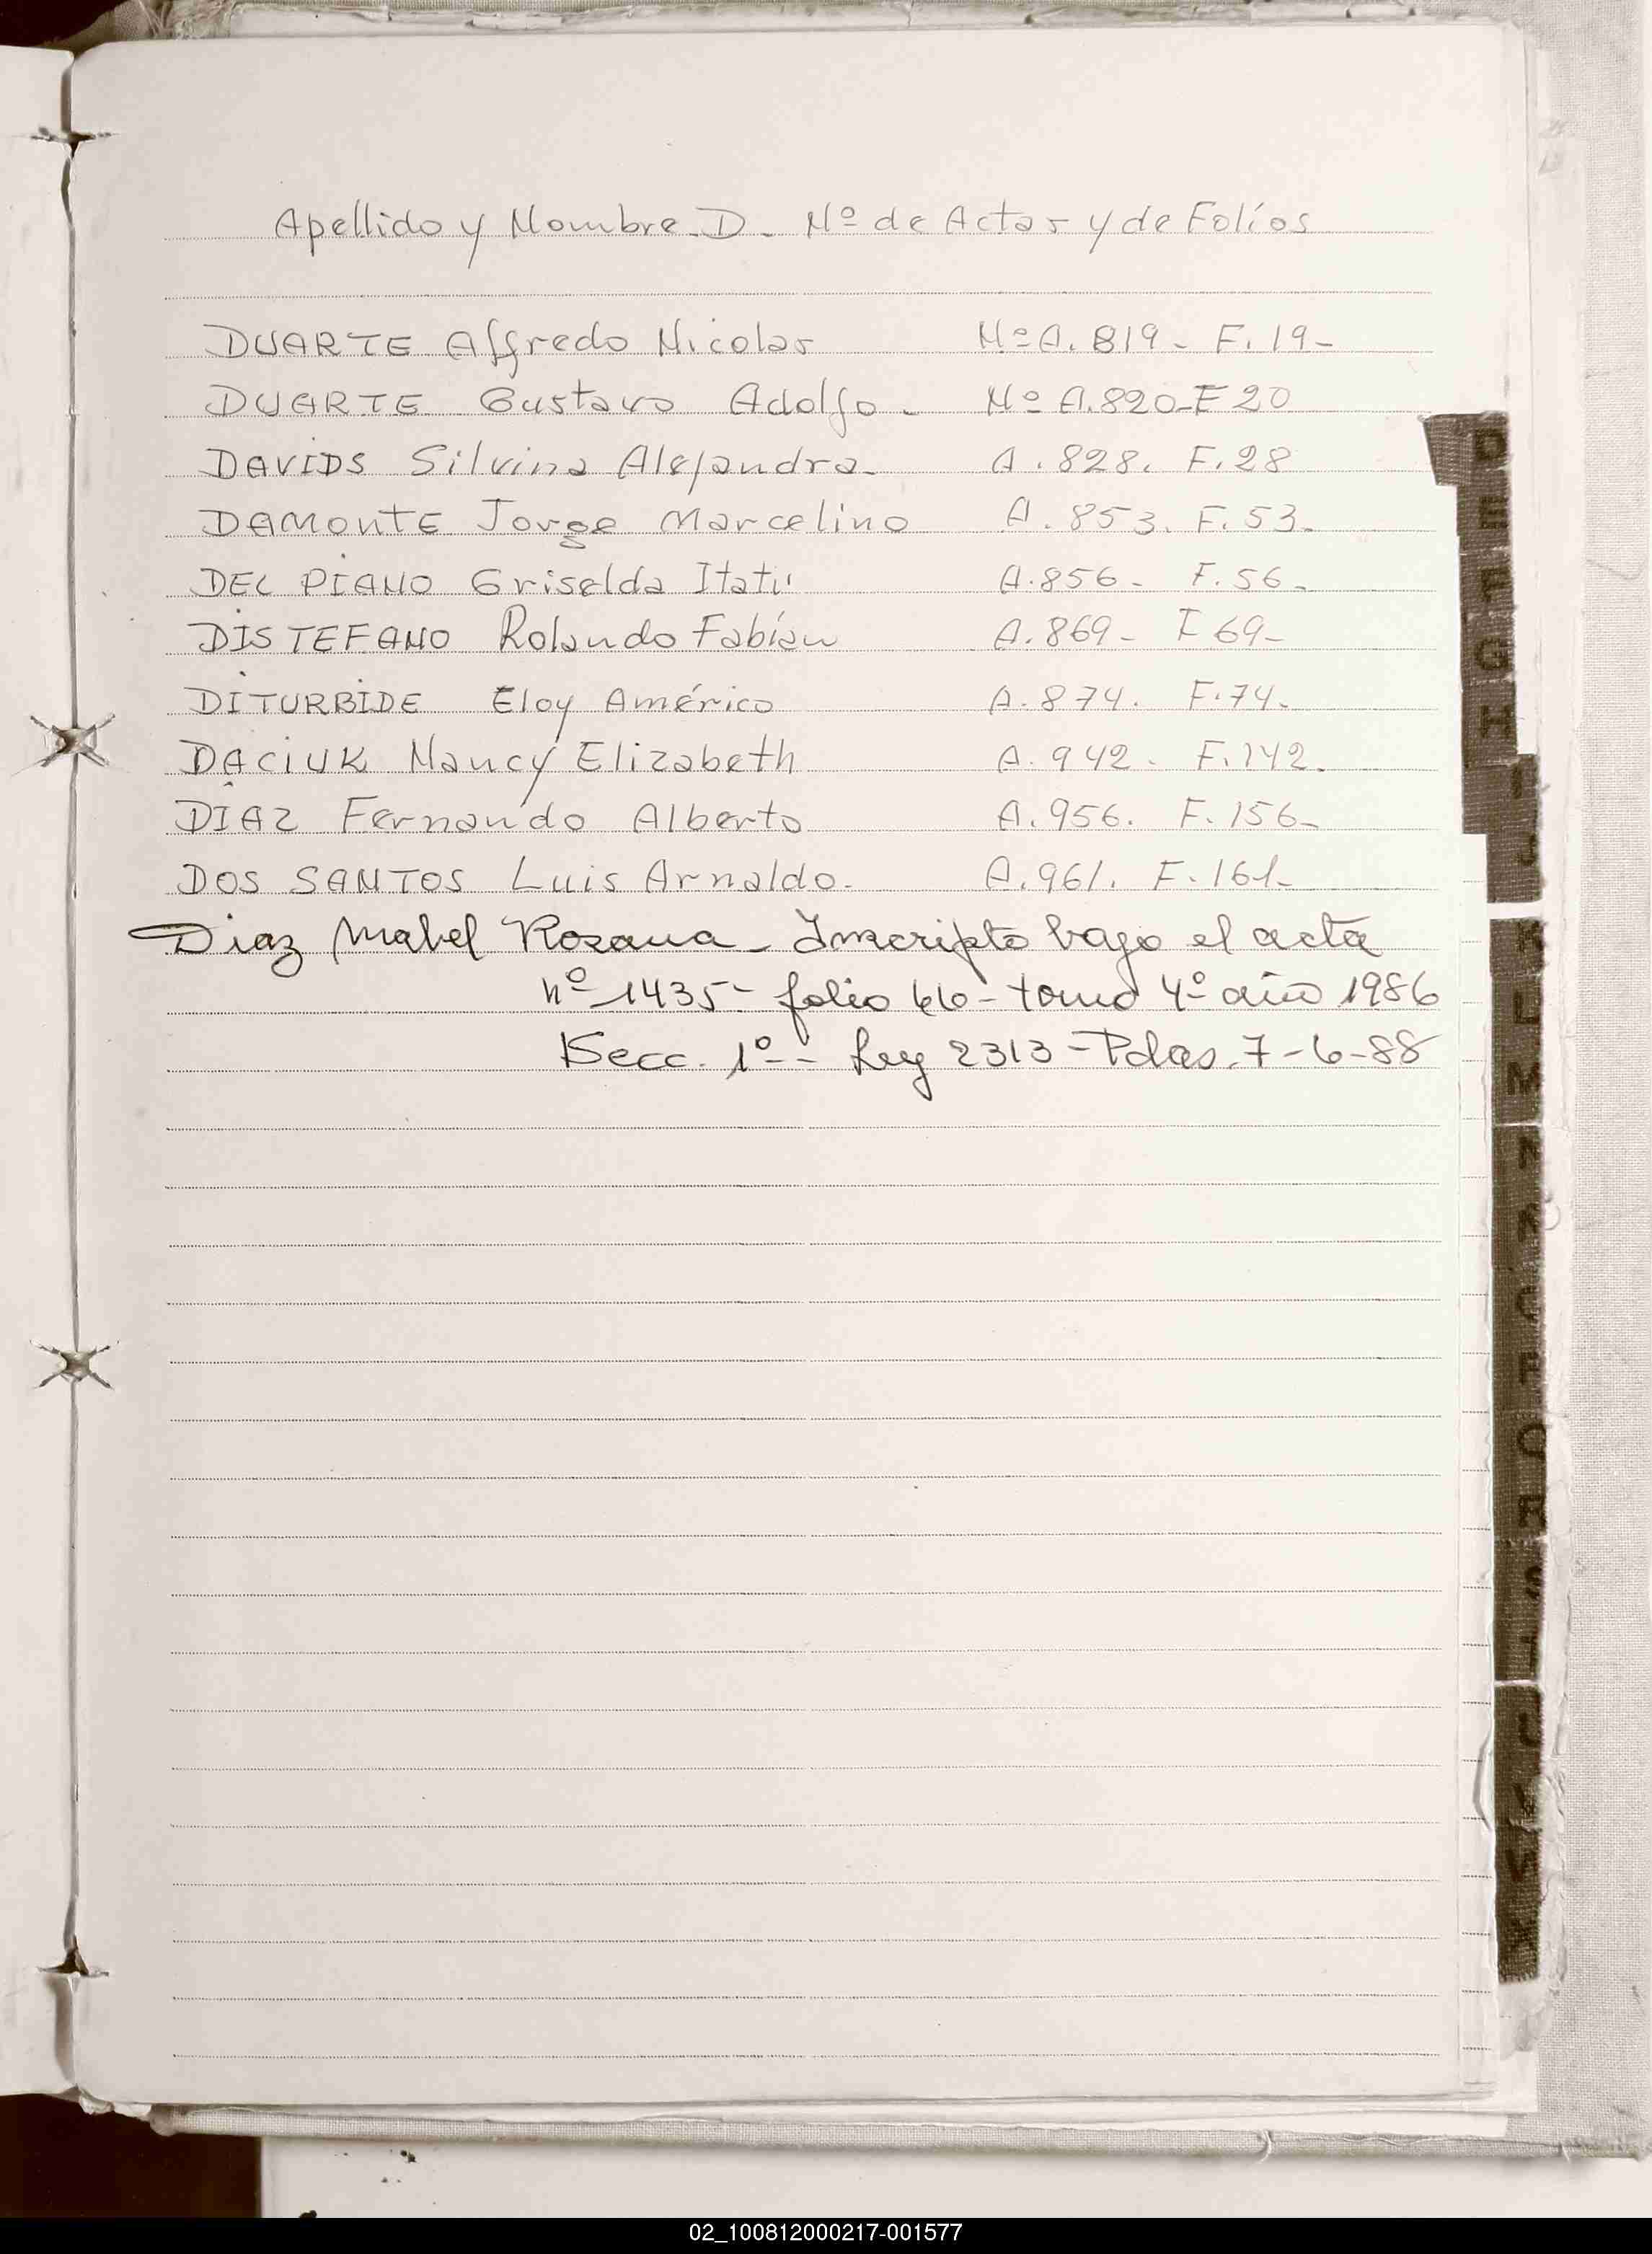 Apellido y Nombre - D - Nº de Actas y de Folios
DUARTE Alfredo Nicolas Nº A. 819 - F. 19 -
DUARTE Gustavo Adolfo - Nº A. 820 - F 20
DAVIDS Silvina Alejandra - A. 828. F. 28
DAMONTE Jorge Marcelino A. 853. F. 53 -
DEL PIANO Griselda Itatí A. 856 - F. 56 -
DISTEFANO Rolando Fabián A. 869 - F 69 -
DITURBIDE Eloy Américo A. 874. F. 74 -
DACIUK Nancy Elizabeth A. 942 - F. 142.
DIAZ Fernando Alberto A. 956. F. 156 -
DOS SANTOS Luis Arnaldo - A. 961. F. 161 -
Diaz Mabel Rosana - Inscripto bajo el acta
nº 1435 - folio 46 - tomo 4º año 1986
Secc. 1º - Ley 2313 - Pdas. 7-6-88
D
E
F
G
H
I
J
K
L
M
N
Ñ
O
P
Q
R
S
T
U
V
02_100812000217-001577